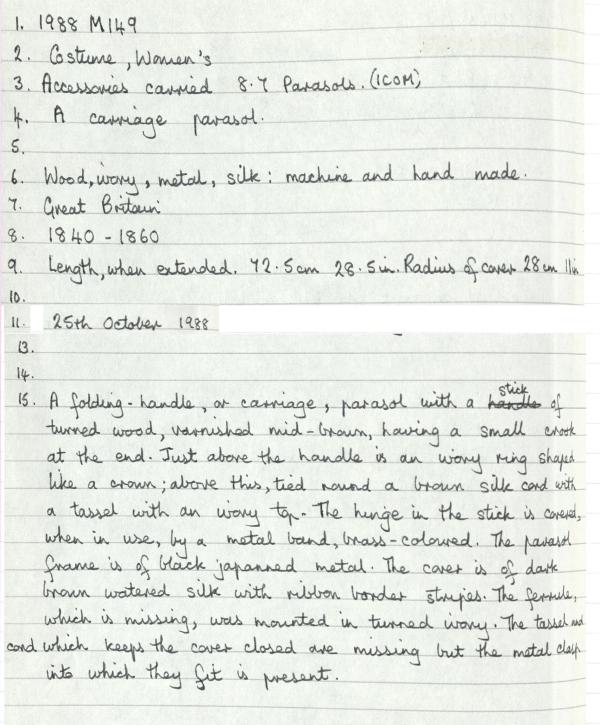 1. 1988 M149
2. Costume, Women's
3. Accessories carried 8.7 Parasols. (ICOM)
4. A carriage parasol.
5.
6. Wood, ivory, metal, silk : machine and hand made.
7. Great Britain
8. 1840 - 1860
9. Length, when extended. 72.5cm 28.5in. Radius of cover 28cm 11in
10.
11. 25th October 1988
13.
14.
15. A folding-handle, or carriage, parasol with a ~~handle~~ stick of
turned wood, varnished mid-brown, having a small crook
at the end. Just above the handle is an ivory ring shaped
like a crown; above this, tied round a brown silk cord with
a tassel with an ivory top. The hinge in the stick is covered,
when in use, by a metal band, brass-coloured. The parasol
frame is of black japanned metal. The cover is of dark
brown watered silk with ribbon border stripes. The ferrule,
which is missing, was mounted in turned ivory. The tassel and
cord which keeps the cover closed are missing but the metal clasp
into which they fit is present.